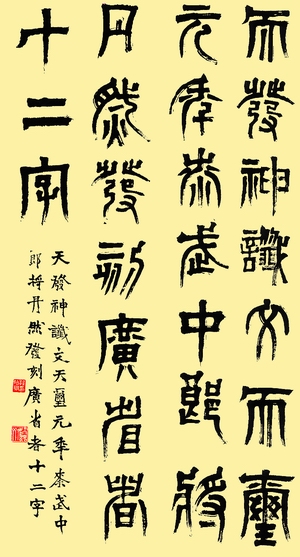 天發神讖文天璽
元年泰武中郎將
丹然發刻廣省者
十二字
天發神讖文天璽元年泰武中
郎將丹然發刻廣省者十二字